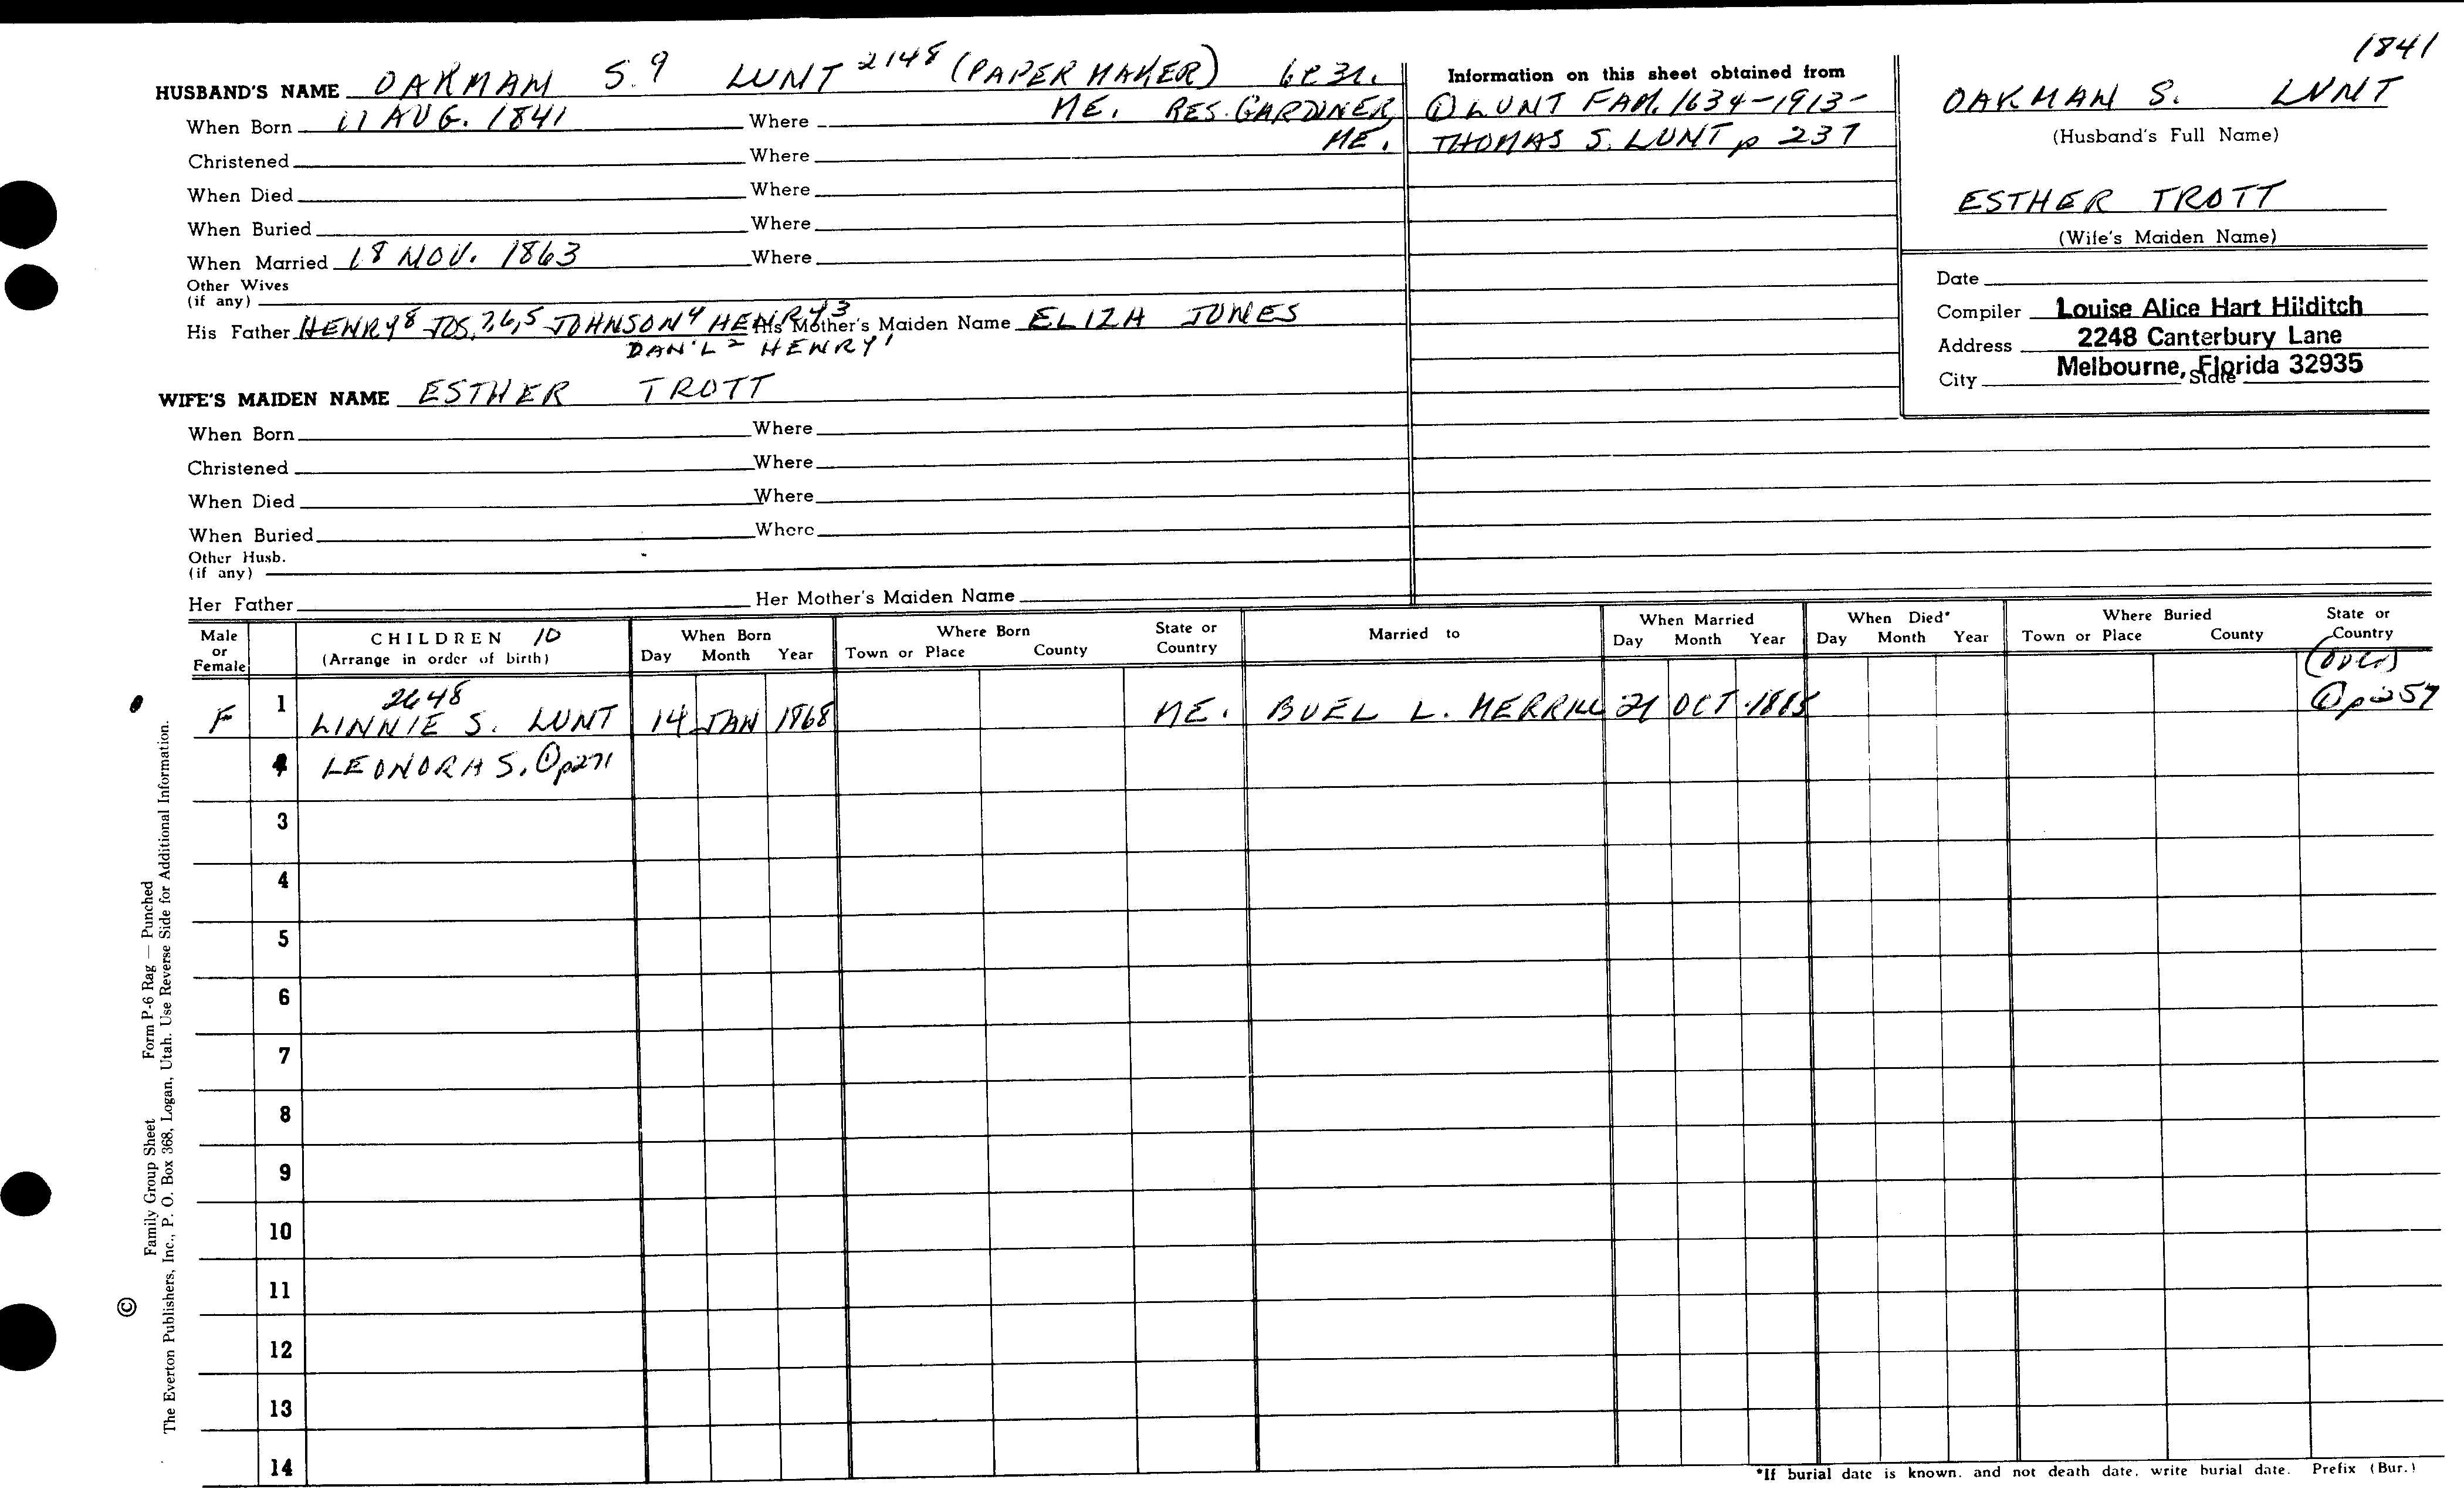 1841
HUSBAND'S NAME OAKMAN S.9 LUNT 2148 (PAPER MAKER)
When Born 11 AUG. 1841 Where ME. RES. GARDINER, ME.
Christened Where
When Died Where
When Buried Where
When Married 18 NOV. 1863 Where
Other Wives
(if any)
His Father HENRY8 JOS.7,6,5 JOHNSON4 HENRY3 His Mother's Maiden Name ELIZA JONES
DAN'L2 HENRY1
Information on this sheet obtained from
① LUNT FAM. 1634-1913-
THOMAS S. LUNT p 237
OAKMAN S. LUNT
(Husband's Full Name)
ESTHER TROTT
(Wife's Maiden Name)
Date
Compiler Louise Alice Hart Hilditch
Address 2248 Canterbury Lane
City Melbourne, Florida 32935 State
WIFE'S MAIDEN NAME ESTHER TROTT
When Born Where
Christened Where
When Died Where
When Buried Where
Other Husb.
(if any)
Her Father Her Mother's Maiden Name
Male or Female CHILDREN 10 (Arrange in order of birth) When Born Day Month Year Where Born Town or Place County State or Country Married to When Married Day Month Year When Died* Day Month Year Where Buried Town or Place County State or Country
(OVER)
2648
F 1 LINNIE S. LUNT 14 JAN 1868 ME. BUEL L. MERRILL 21 OCT. ① p 257
LEONORA S. ① p271
3
4
5
6
7
8
9
10
11
12
13
14
*If burial date is known, and not death date, write burial date. Prefix (Bur.)
© Family Group Sheet Form P-6 Rag — Punched
The Everton Publishers, Inc., P. O. Box 368, Logan, Utah. Use Reverse Side for Additional Information.